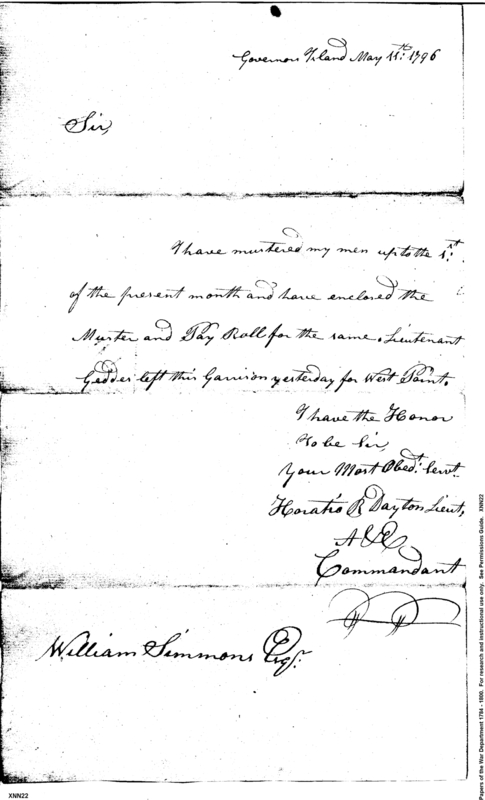 Governors Island May 11th: 1796
Sir,
I have mustered my men up to the 1st.
of the present month and have enclosed the
Muster and Pay Roll for the same. Lieutenant
Geddes left this Garrison yesterday for West Point.
I have the Honor
to be Sir,
Your Most Obedt. Servt.
Horatio R Dayton Lieut,
A & E
Commandant
William Simmons Esqr.
Papers of the War Department 1784 - 1800. For research and instructional use only. See Permissions Guide. XNN22
XNN22